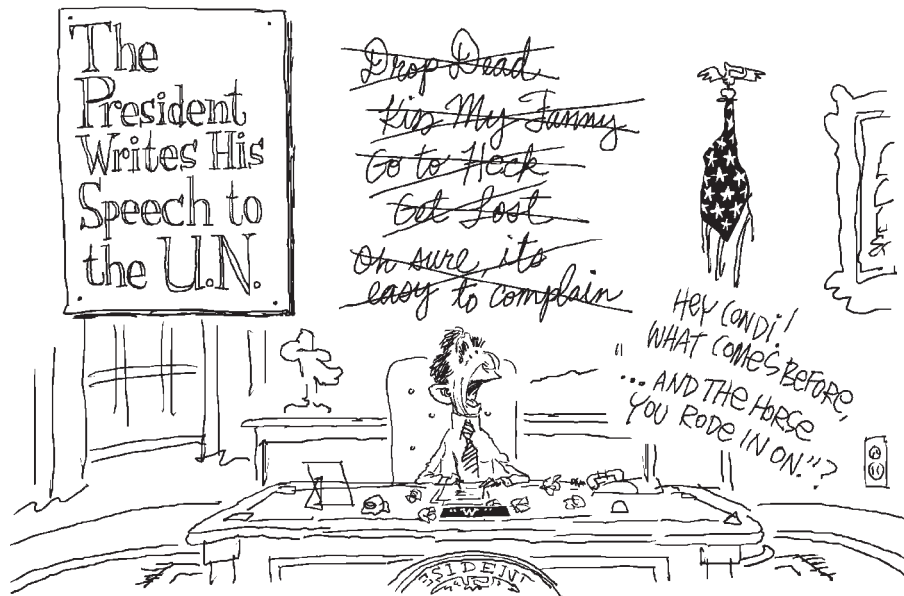 The
President
Writes His
Speech to
the U.N.
Drop Dead
Kiss My Fanny
Go to Heck
Get Lost
Oh sure, its
easy to complain
HEY CONDI!
WHAT COMES BEFORE,
"... AND THE HORSE
YOU RODE IN ON."?
"W"
ESIDENT